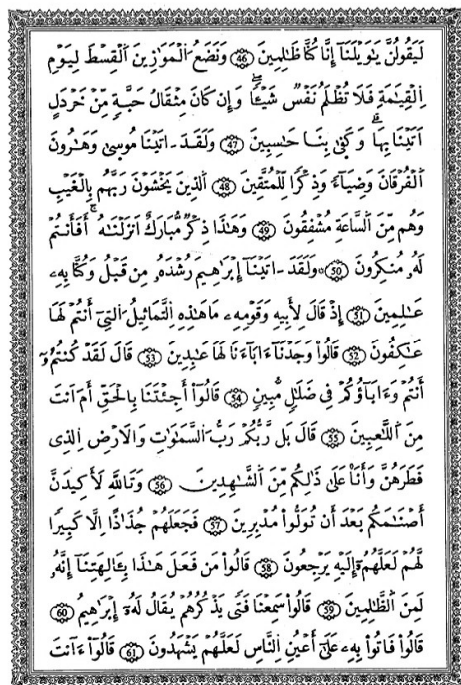 لَيَقُولُنَّ يَٰوَيْلَنَآ إِنَّا كُنَّا ظَٰلِمِينَ 46 وَنَضَعُ الْمَوَٰزِينَ الْقِسْطَ لِيَوْمِ
اِلْقِيَٰمَةِ فَلَا تُظْلَمُ نَفْسٌ شَيْـٔاً وَإِن كَانَ مِثْقَالُ حَبَّةٍ مِّنْ خَرْدَلٍ
اَتَيْنَا بِهَا وَكَفَىٰ بِنَا حَٰسِبِينَ 47 وَلَقَدَ ـ اتَيْنَا مُوسَىٰ وَهَٰرُونَ
اَلْفُرْقَانَ وَضِيَآءً وَذِكْراً لِّلْمُتَّقِينَ 48 اَلذِينَ يَخْشَوْنَ رَبَّهُم بِالْغَيْبِ
وَهُم مِّنَ اَلسَّاعَةِ مُشْفِقُونَ 49 وَهَٰذَا ذِكْرٌ مُّبَٰرَكٌ اَنزَلْنَٰهُ أَفَأَنتُمْ
لَهُۥ مُنكِرُونَ 50 وَلَقَدَ ـ اتَيْنَآ إِبْرَٰهِيمَ رُشْدَهُۥ مِن قَبْلُ وَكُنَّا بِهِۦ
عَٰلِمِينَ 51 إِذْ قَالَ لِأَبِيهِ وَقَوْمِهِۦ مَا هَٰذِهِ اِلتَّمَاثِيلُ اُلتِىٓ أَنتُمْ لَهَا
عَٰكِفُونَ 52 قَالُواْ وَجَدْنَآ ءَابَآءَنَا لَهَا عَٰبِدِينَ 53 قَالَ لَقَدْ كُنتُمُۥٓ
أَنتُمْ وَءَابَآؤُكُمْ فِى ضَلَٰلٍ مُّبِينٍ 54 قَالُوٓاْ أَجِئْتَنَا بِالْحَقِّ أَمَ اَنتَ
مِنَ اَللَّٰعِبِينَ 55 قَالَ بَل رَّبُّكُمْ رَبُّ السَّمَٰوَٰتِ وَالَارْضِ اِلذِى
فَطَرَهُنَّ وَأَنَا۠ عَلَىٰ ذَٰلِكُم مِّنَ اَلشَّٰهِدِينَ 56 وَتَاللَّهِ لَأَكِيدَنَّ
أَصْنَٰمَكُم بَعْدَ أَن تُوَلُّواْ مُدْبِرِينَ 57 فَجَعَلَهُمْ جُذَٰذاً اِلَّا كَبِيراً
لَّهُمْ لَعَلَّهُمُۥٓ إِلَيْهِ يَرْجِعُونَ 58 قَالُواْ مَن فَعَلَ هَٰذَا بِـَٔالِهَتِنَآ إِنَّهُۥ
لَمِنَ اَلظَّٰلِمِينَ 59 قَالُواْ سَمِعْنَا فَتىً يَذْكُرُهُمْ يُقَالُ لَهُۥٓ إِبْرَٰهِيمُ 60
قَالُواْ فَاتُواْ بِهِۦ عَلَىٰٓ أَعْيُنِ اِلنَّاسِ لَعَلَّهُمْ يَشْهَدُونَ 61 قَالُوٓاْ ءَآنتَ